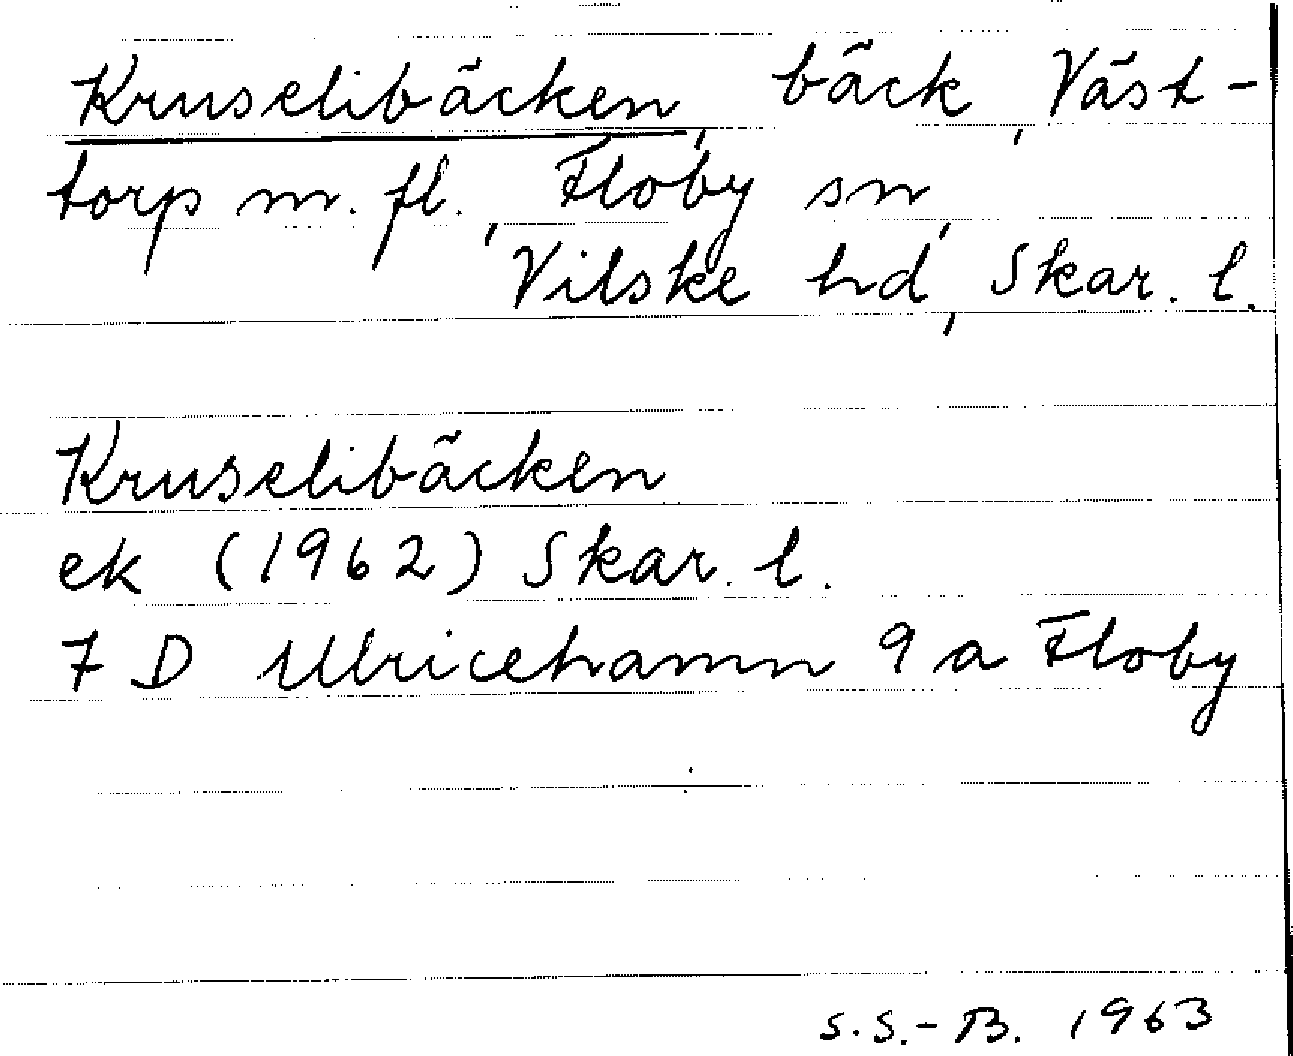 Kruselibäcken, bäck, Väst-
torp m. fl., Floby sn,
Vilske hd, Skar. l.
Kruselibäcken
ek (1962) Skar. l.
7 D Ulricehamn 9 a Floby
S.S.-B. 1963